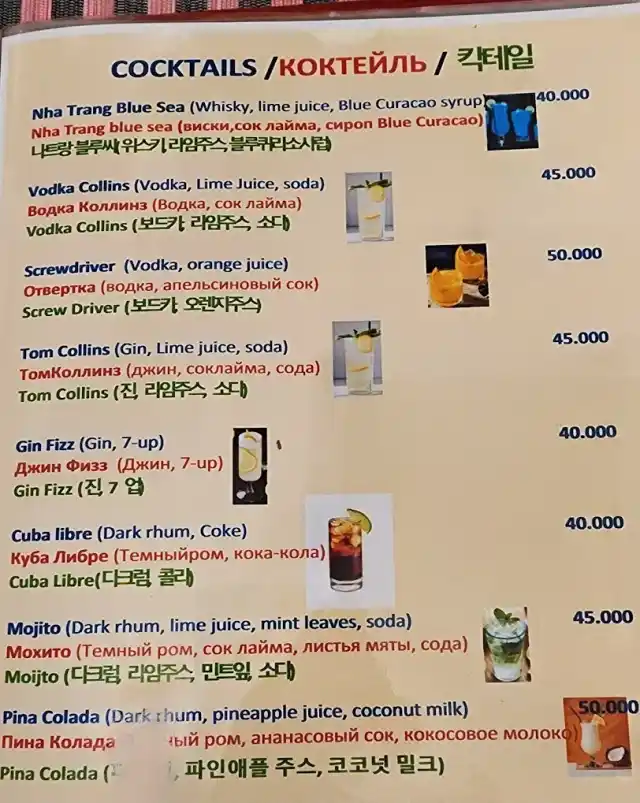 COCKTAILS /КОКТЕЙЛЬ / 칵테일
Nha Trang Blue Sea (Whisky, lime juice, Blue Curacao syrup) 40.000
Nha Trang blue sea (виски,сок лайма, сироп Blue Curacao)
나트랑 블루씨(위스키, 라임주스, 블루큐라소시럽)
Vodka Collins (Vodka, Lime Juice, soda) 45.000
Водка Коллинз (Водка, сок лайма)
Vodka Collins (보드카, 라임주스, 소다)
Screwdriver (Vodka, orange juice) 50.000
Отвертка (водка, апельсиновый сок)
Screw Driver (보드카, 오렌지주스)
Tom Collins (Gin, Lime juice, soda) 45.000
ТомКоллинз (джин, соклайма, сода)
Tom Collins (진, 라임주스, 소다)
Gin Fizz (Gin, 7-up) 40.000
Джин Физз (Джин, 7-up)
Gin Fizz (진, 7 업)
Cuba libre (Dark rhum, Coke) 40.000
Куба Либре (Темныйром, кока-кола)
Cuba Libre(다크럼, 콜라)
Mojito (Dark rhum, lime juice, mint leaves, soda) 45.000
Мохито (Темный ром, сок лайма, листья мяты, сода)
Moijto (다크럼, 라임주스, 민트잎, 소다)
Pina Colada (Dark rhum, pineapple juice, coconut milk) 50.000
Пина Колада ный ром, ананасовый сок, кокосовое молоко)
Pina Colada ( , 파인애플 주스, 코코넛 밀크)